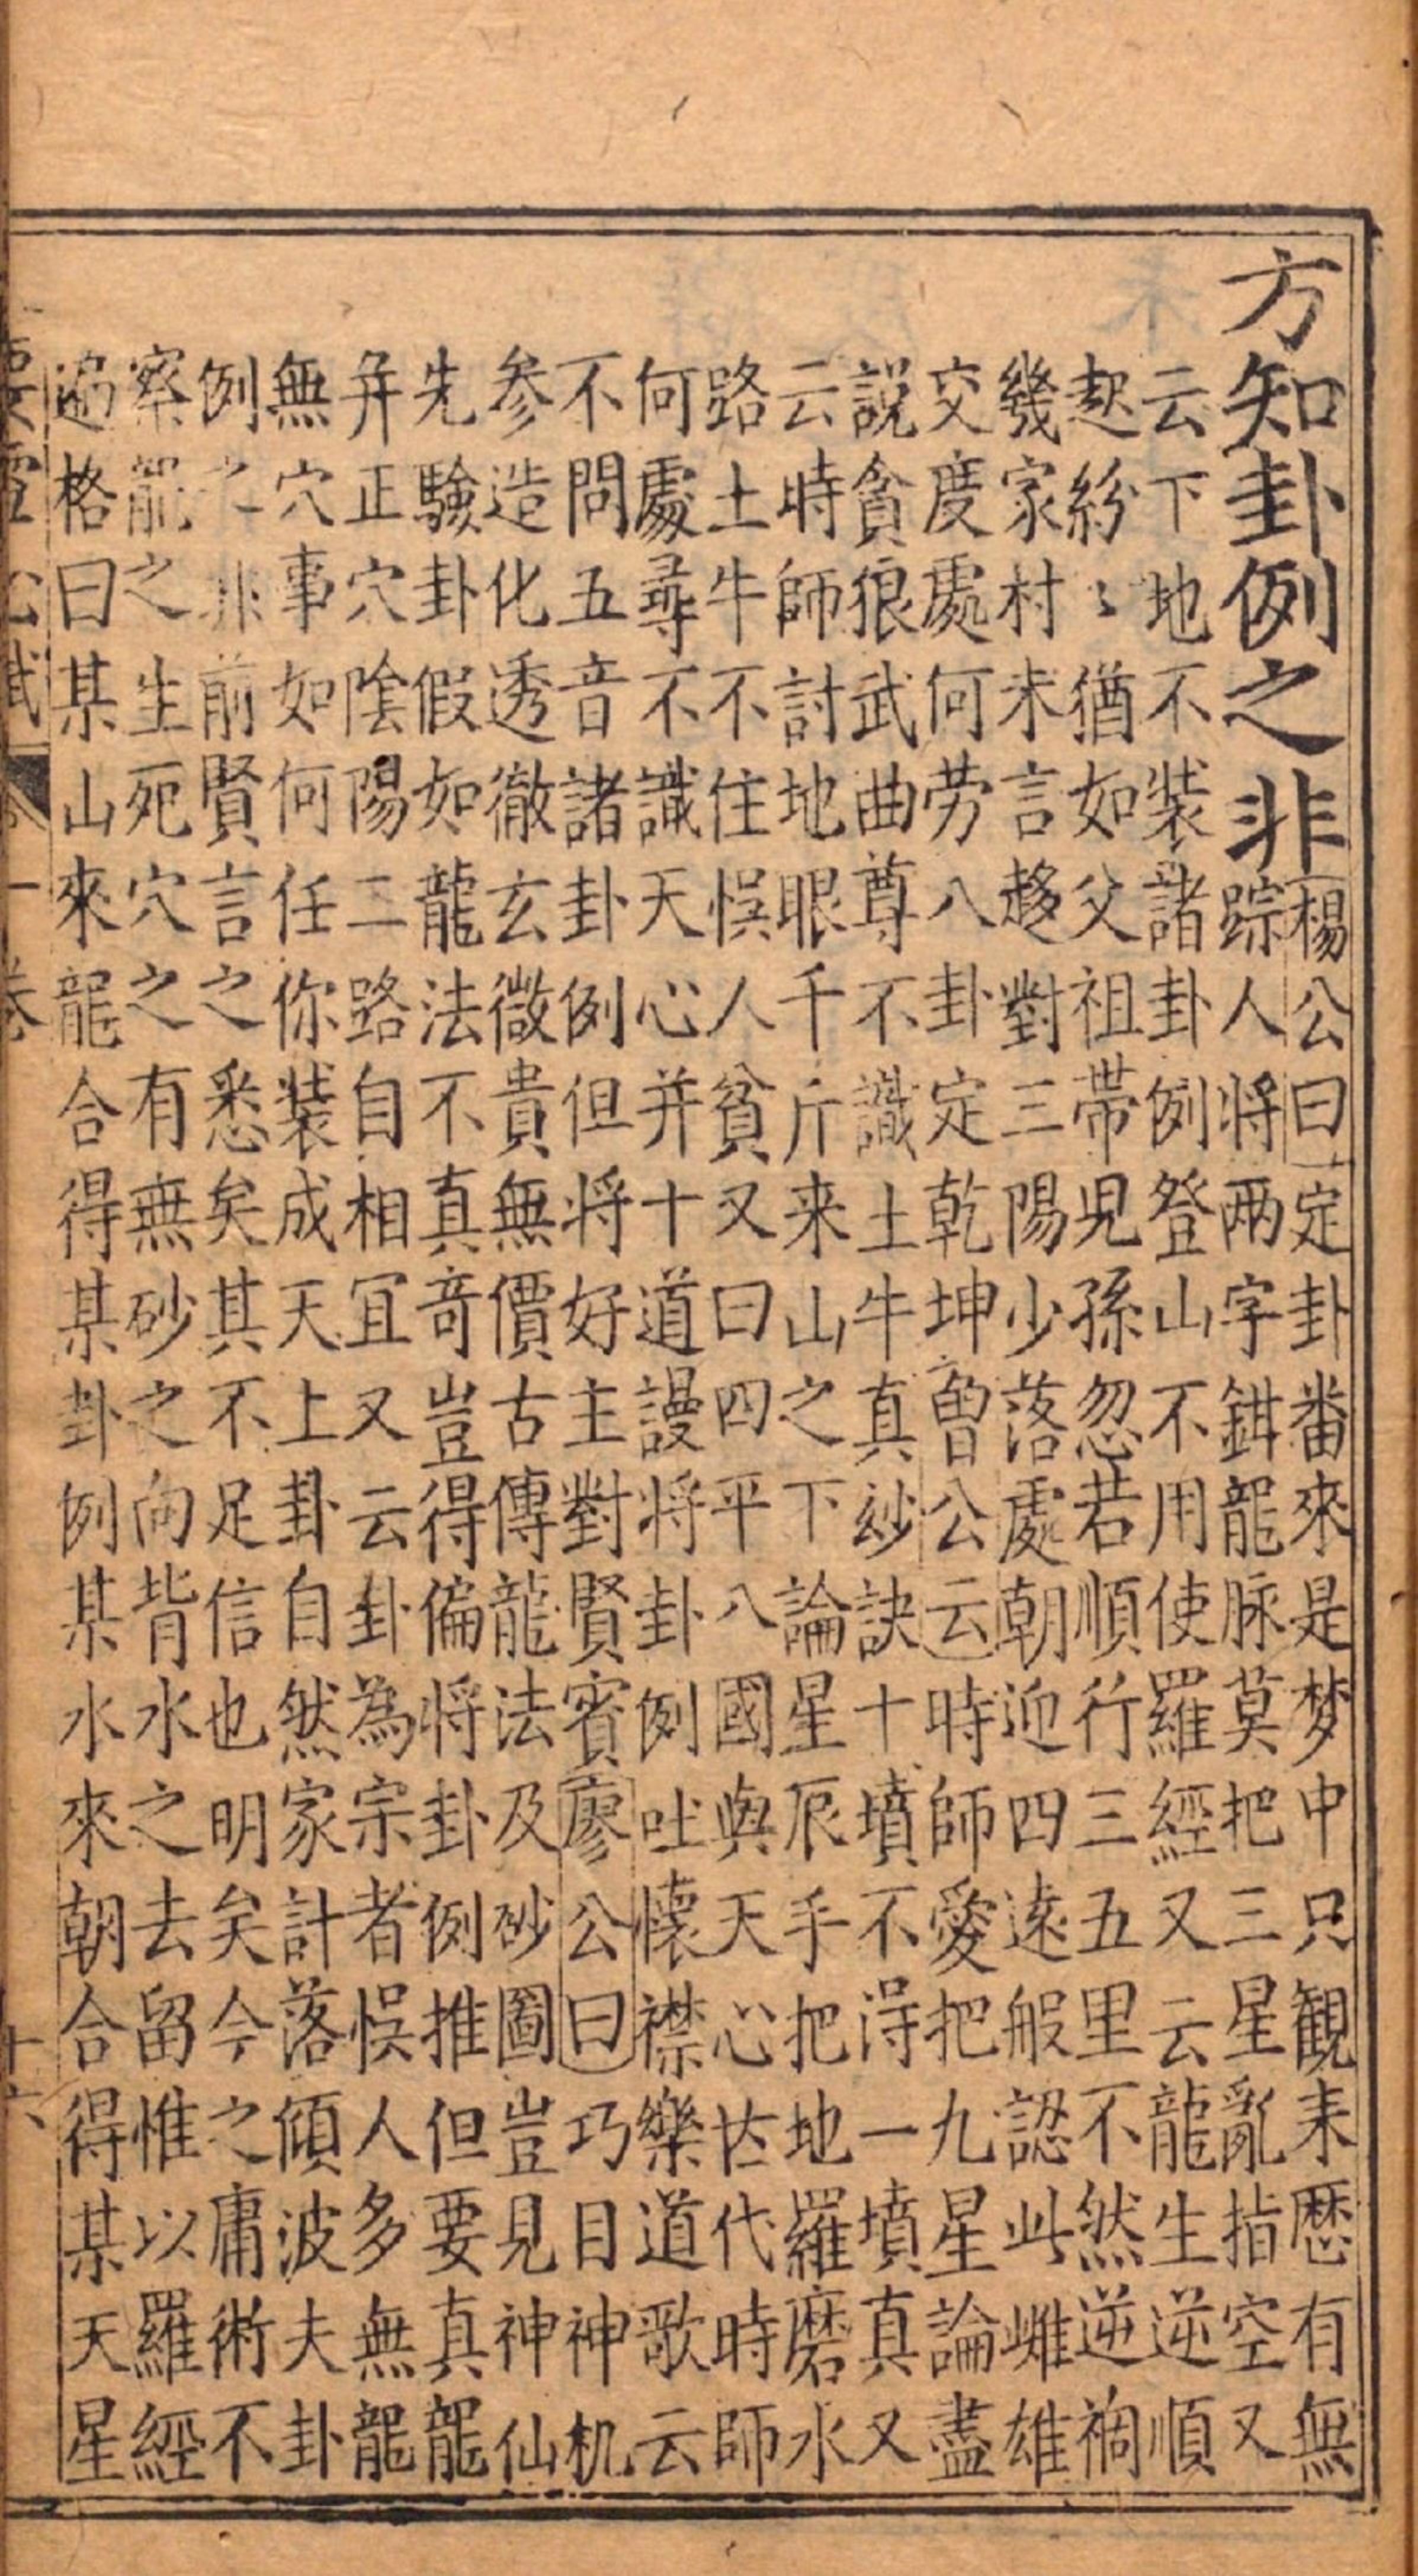 方知卦例之非
楊公曰定卦番來是梦中只観来歴有無
踪人将兩字鉗龍脉莫把三星亂指空又
云下地不裝諸卦例登山不用使羅經又云龍生逆順
起紛〻猶如父祖帶児孫忽若順行三五里不然逆禍
幾家村未言趍對三陽少落處朝迎四逺般認此雌雄
交度處何劳八卦定乾坤曽公云時師愛把九星論盡
說貪狼武曲尊不識土牛真玅訣十墳不淂一墳真又
云時師討地眼千斤来山之下論星辰手把地羅磨水
路土牛不住悮人貧又曰四平八國與天心古代時師
何處尋不識天心并十道謾将卦例吐懐襟樂道歌云
不問五音諸卦例但将好主對賢賓廖公曰巧目神机
参造化透徹玄微貴無價古傳龍法及砂圖豈見神仙
先驗卦假如龍法不真竒豈得偏将卦例推但要真龍
并正穴陰陽二路自相冝又云卦為宗者悮人多無龍
無穴事如何任你装成天上卦自然家計落傾波夫卦
例之非前賢言之悉矣其不足信也明矣今之庸術不
察龍之生死穴之有無砂之向背水之去留惟以羅經
遍格曰某山來龍合得某卦例某水來朝合得某天星